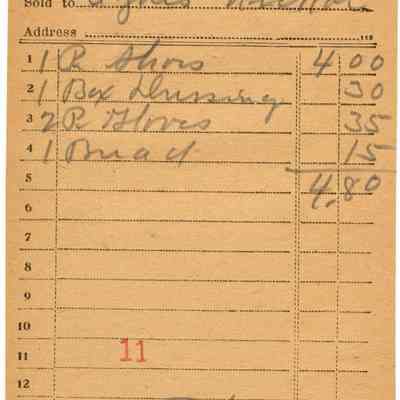 Sold to
Address
1 1 Pr Shoes 4 00
2 1 Box Dressing 30
3 2 Pr Gloves 35
4 1 Bread 15
5 4.80
6
7
8
9
10
11 11
12